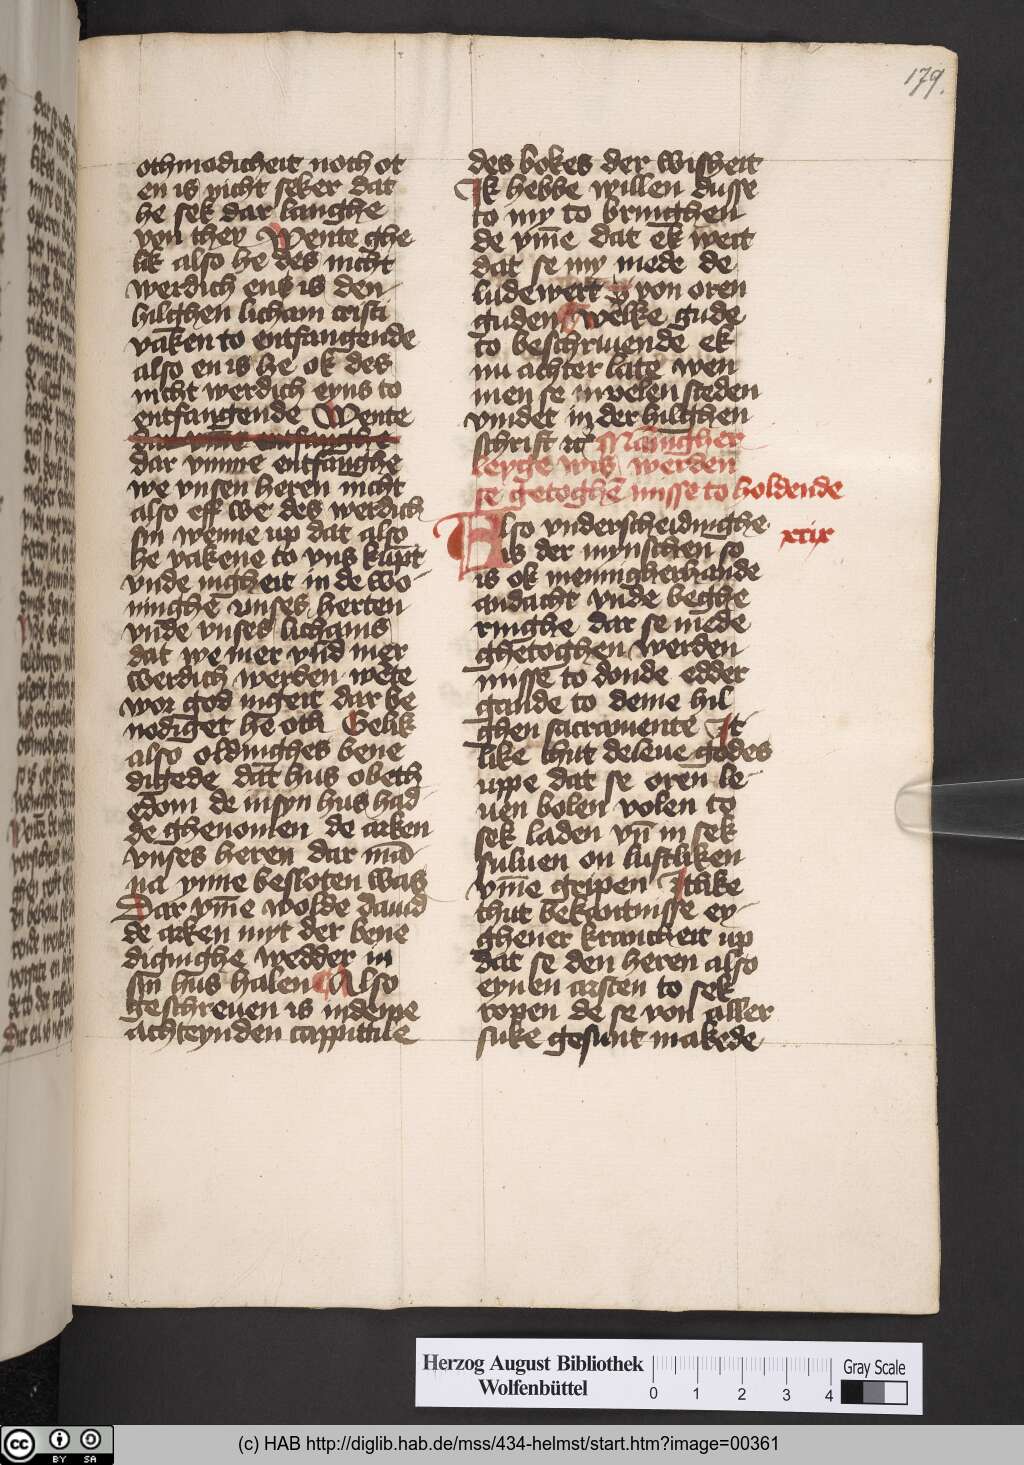 179.
othmodicheit noch ot
en is nicht seker dat
he sek dar langhe
von they Wente ghe
lik also he des nicht
werdich ens is den
hilghen licham cristi
vaken to entfangende
also en is he ok des
nicht werdich eyns to
entfangende Wente
dar vm̄e entfanghe
dar vmme entfanghe
we vnsen heren nicht
also eff we des werdich
sin wenne up dat also
he vakene to vns kūpt
vnde nigheit in de wo
ninghe vnses herten
vnde vnses lichams
dat we mer vnd mer
werdich werden wēte
wor god ingeit dar be
nodiget he oth Gelik
also oldinghes bene
digede dat hus obeth
edom de in syn hus had
de ghenomen de arken
vnses heren dar mā
na ynne besloten was
Dar vm̄e wolde dauid
de arken myt der bene
diginghe wedder in
sin hus halen Also
geschreuen is in deme
achteynden cappittile
des bokes der wisheit
Ik hebbe willen dusse
to my to bringhen
de vm̄e dat ek weit
dat se my mede de
lude wert von oren
guden Welke gude
to beschriuende ek
nu achter late wen
men se in velen steden
vindet in der hilghen
schrift
Mānigher
leyge wis werden
se getoghē misse to holdende
xxix
Also vnderscheidinghe
is der mynschen so
is ok mennigherhande
andacht vnde beghe
ringhe dar se mede
ghetoghen werden
misse to donde edder
gande to deme hil
ghen sacramente It
like thut de leue godes
uppe dat se oren le
uen bolen volen to
sek laden vn̄ in sek
suluen on lustliken
vm̄e gripen Itlike
thut bekantnisse ey
ghener krancheit up
dat se den heren also
eynen arsten to sek
ropen de se von aller
suke gesunt makede
Herzog August Bibliothek
Wolfenbüttel
0 1 2 3 4
Gray Scale
cc BY SA
(c) HAB http://diglib.hab.de/mss/434-helmst/start.htm?image=00361